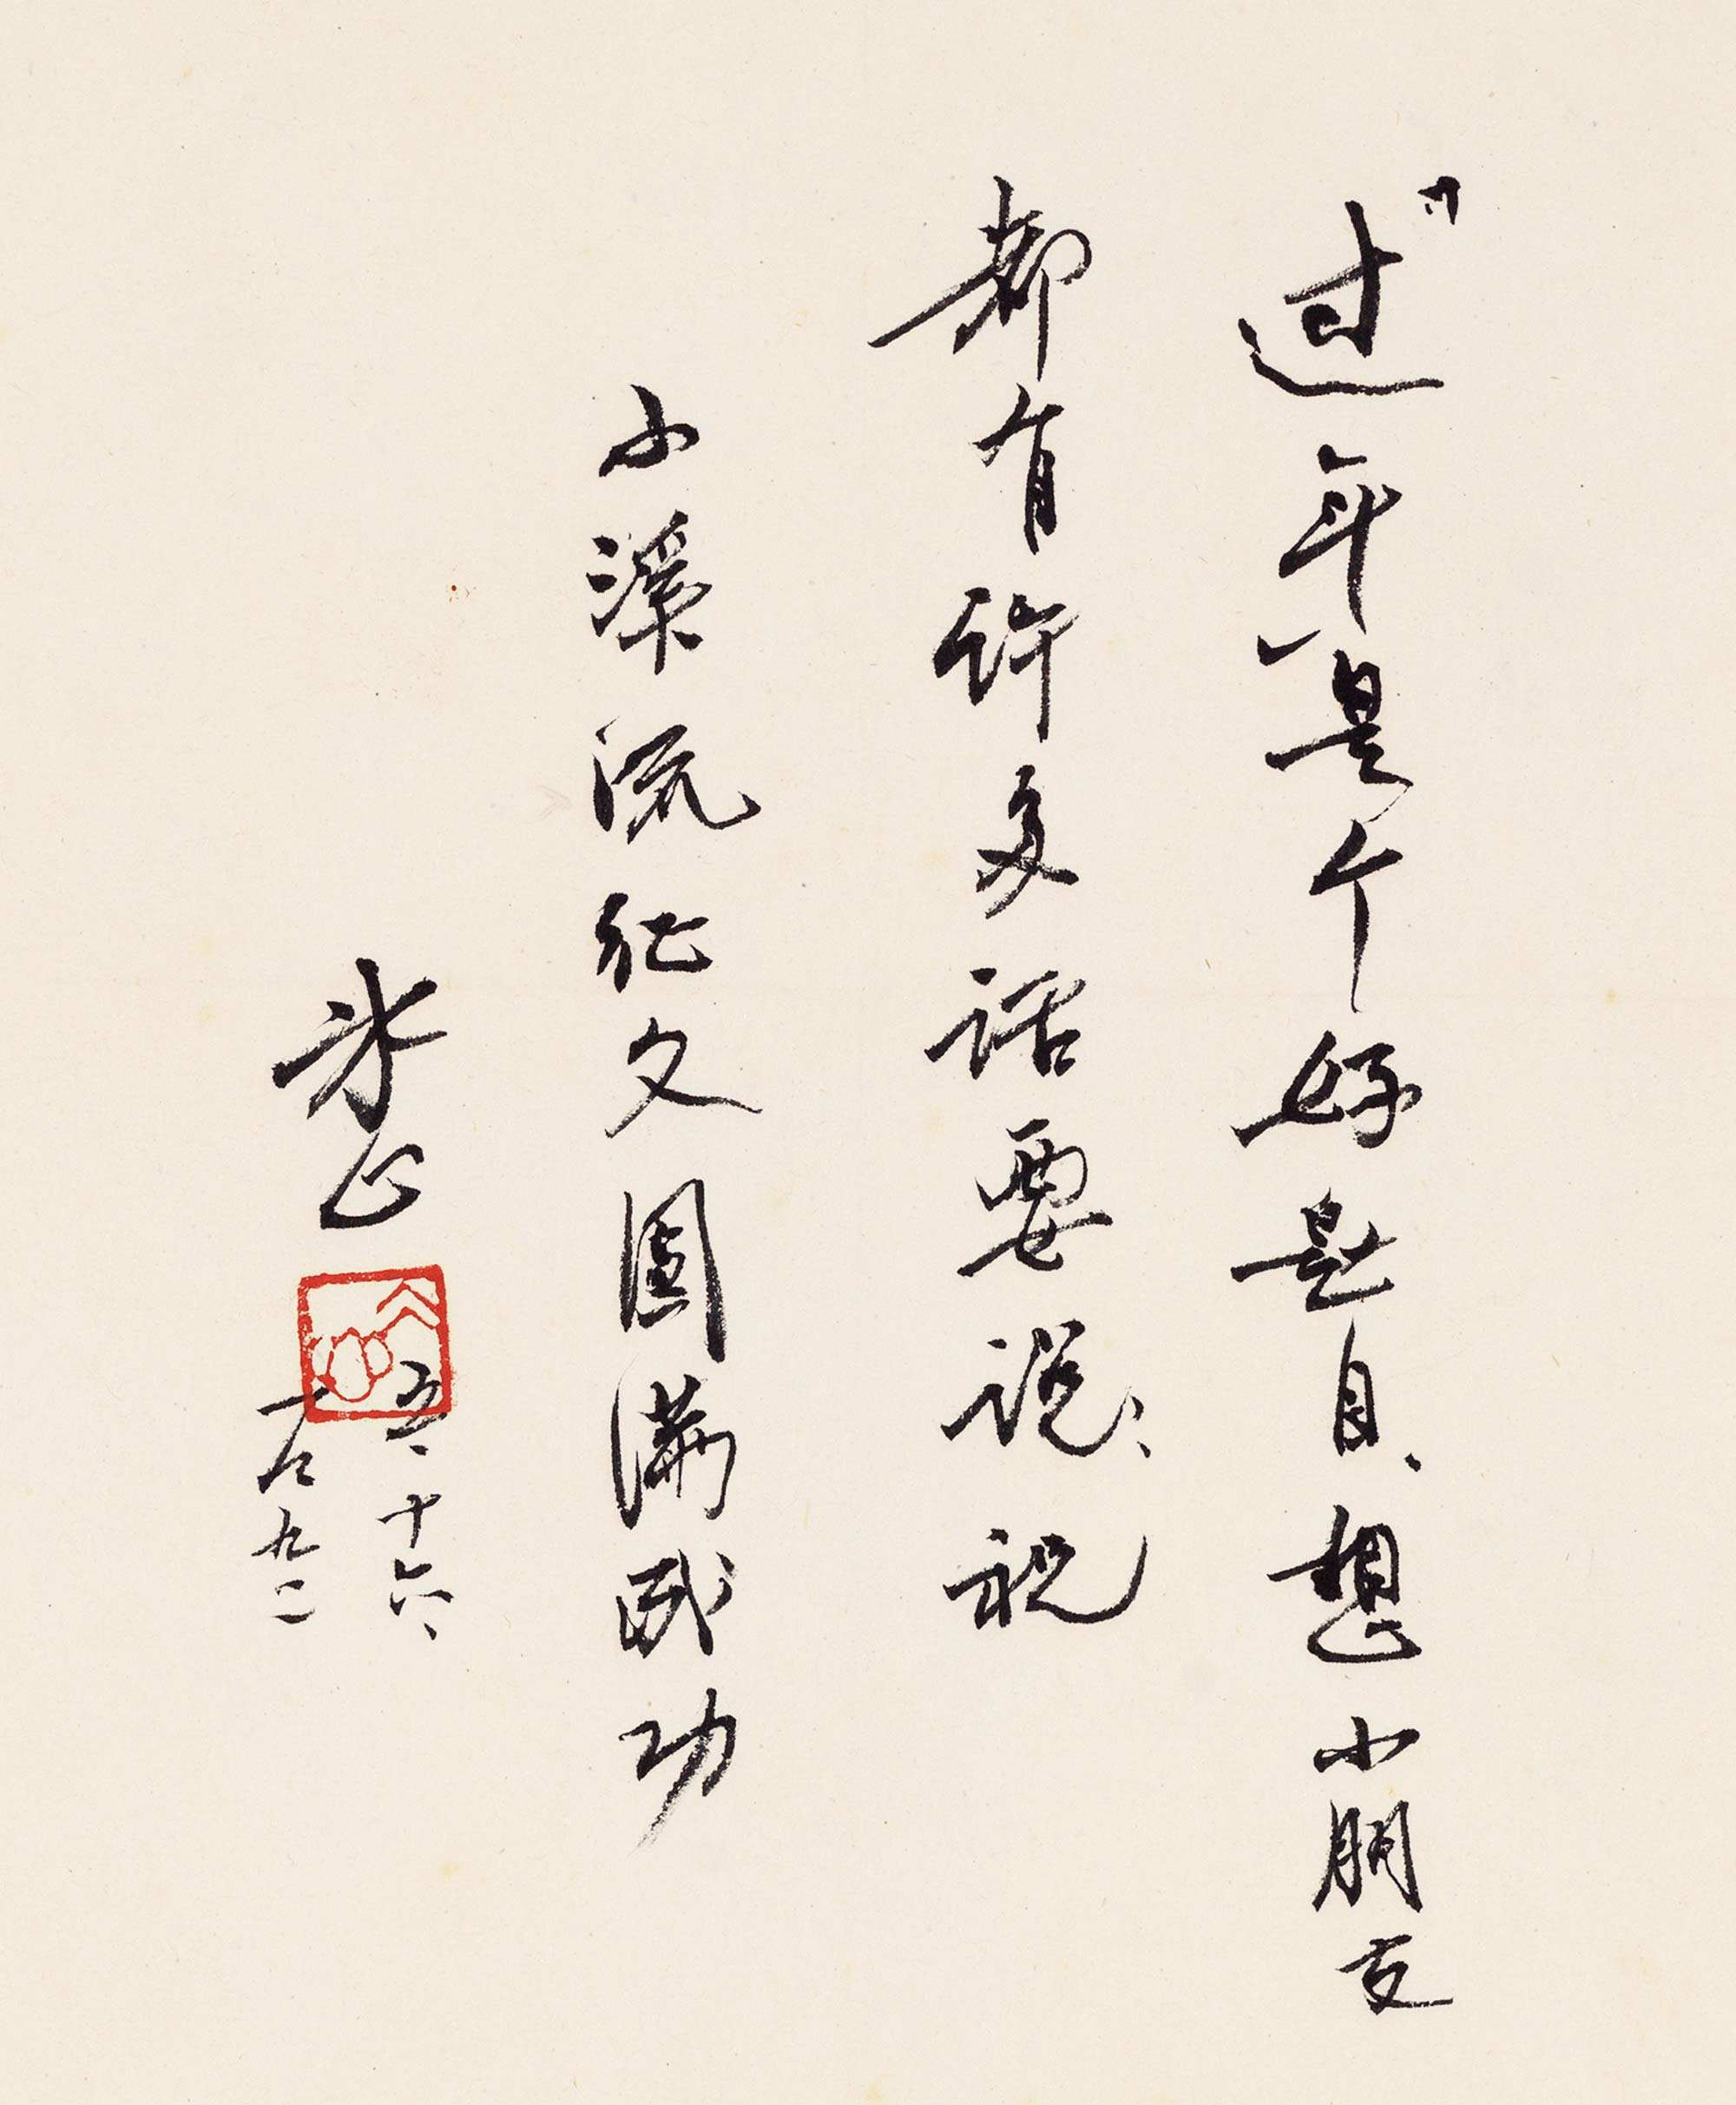 “过年”是个好题目.想小朋友
都有许多话要说、祝
小溪流征文圆满成功
冰心
冰心
五、十六、
一九九二